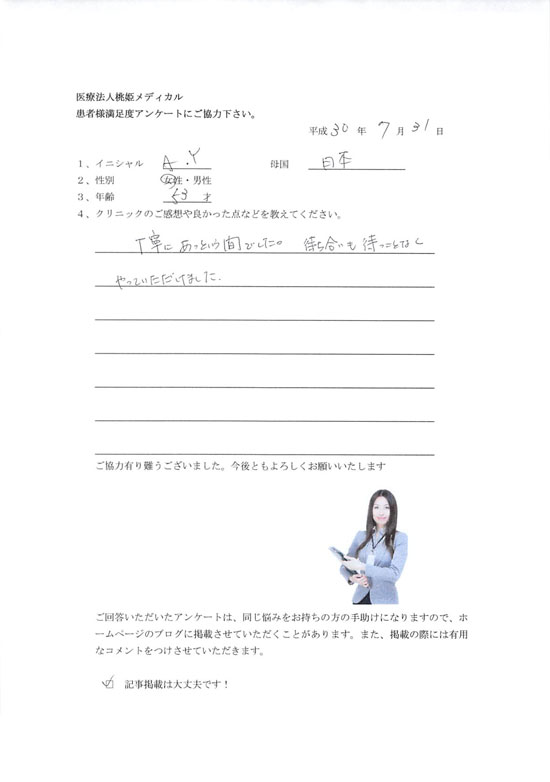 医療法人桃姫メディカル
患者様満足度アンケートにご協力下さい。
平成 30 年 7 月 31 日
1、イニシャル A.Y 母国 日本
2、性別 女性・男性
3、年齢 53 才
4、クリニックのご感想や良かった点などを教えてください。
丁寧に あっという間でした。 待ち合いも 待つことなく
やっていただけました.
ご協力有り難うございました。今後ともよろしくお願いいたします
ご回答いただいたアンケートは、同じ悩みをお持ちの方の手助けになりますので、ホ
ームページのブログに掲載させていただくことがあります。また、掲載の際には有用
なコメントをつけさせていただきます。
☑ 記事掲載は大丈夫です！